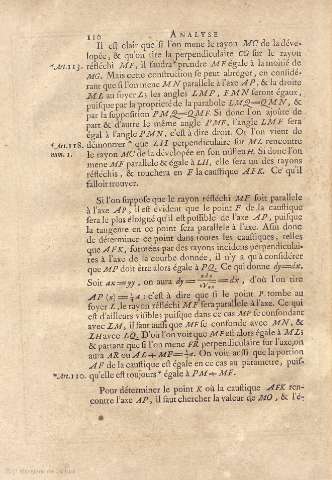 110 ANALYSE
Il est clair que si l'on mene le rayon MC de la déve-
lopée, & qu'on tire la perpendiculaire CG sur le rayon
*Art.113. réfléchi MF, il faudra* prendre MF égale à la moitié de
MG. Mais cette construction se peut abreger, en considé-
rant que si l'on mene MN parallele à l'axe AP, & la droite
ML au foyer L; les angles LMP, FMN seront égaux,
puisque par la proprieté de la parabole LMQ=QMN, &
par la supposition PMQ=QMF. Si donc l'on ajoute de
part & d'autre le même angle PMF, l'angle LMF sera
égal à l'angle PMN, c'est à dire droit. Or l'on vient de
*Art.118. démontrer* que LH perpendiculaire sur ML rencontre
num. 1. le rayon MC de la dévelopée en son milieu H. Si donc l'on
mene MF parallele & égale à LH, elle sera un des rayons
réfléchis, & touchera en F la caustique AFK. Ce qu'il
falloit trouver.
Si l'on suppose que le rayon réfléchi MF soit parallele
à l'axe AP, il est évident que le point F de la caustique
sera le plus éloigné qu'il est possible de l'axe AP, puisque
la tangente en ce point sera parallele à l'axe. Afin donc
de déterminer ce point dans toutes les caustiques, telles
que AFK, formées par des rayons incidens perpendiculai-
res à l'axe de la courbe donnée, il n'y a qu'à considérer
que MP doit être alors égale à PQ. Ce qui donne dy=dx.
Soit ax=yy, on aura dy= =dx, d'où l'on tire
AP (x)=¼a: c'est à dire que si le point P tombe au
foyer L, le rayon réfléchi MF sera parallele à l'axe. Ce qui
est d'ailleurs visible; puisque dans ce cas MP se confondant
avec LM, il faut aussi que MF se confonde avec MN, &
LH avec LQ. D'où l'on voit que MF est alors égale à ML;
& partant que si l'on mene FR perpendiculaire sur l'axe, on
aura AR ou AL+MF=¾a. On voit aussi que la portion
AF de la caustique est égale en ce cas au parametre, puis-
*Art.110. qu'elle est toujours* égale à PM+MF.
Pour déterminer le point K où la caustique AFK ren-
contre l'axe AP, il faut chercher la valeur de MO, & l'é-